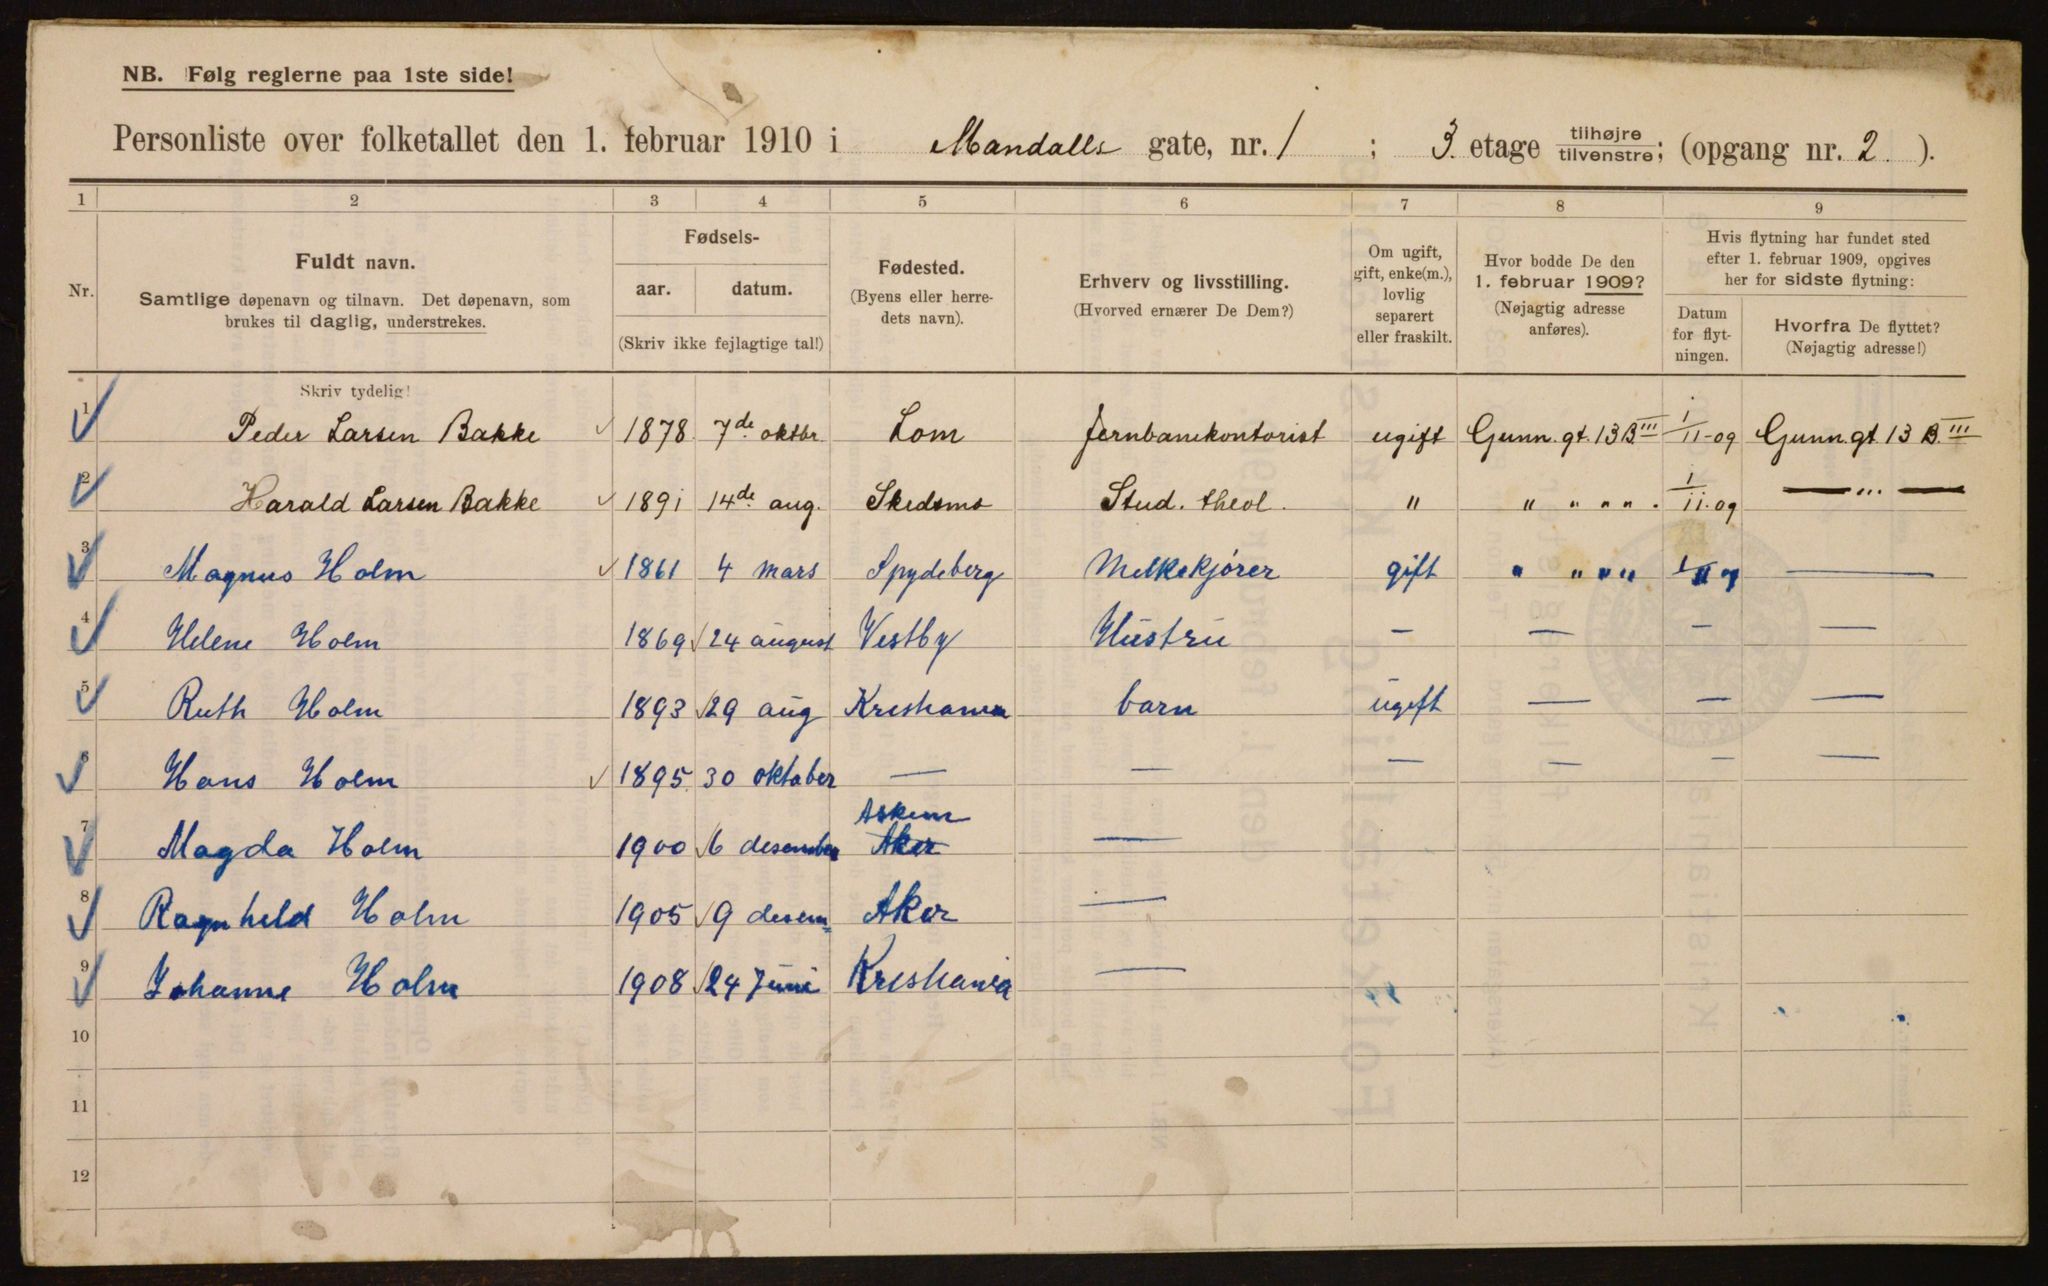 NB. Følg reglerne paa 1ste side!
Personliste over folketallet den 1. februar 1910 i Mandalls gate, nr. 1 ; 3. etage tilhøjre/tilvenstre; (opgang nr. 2 ).
1 2 3 4 5 6 7 8 9
Nr.
Fuldt navn.
Samtlige døpenavn og tilnavn. Det døpenavn, som
brukes til daglig, understrekes.
Fødsels-
aar. datum.
(Skriv ikke fejlagtige tal!)
Fødested.
(Byens eller herre-
dets navn).
Erhverv og livsstilling.
(Hvorved ernærer De Dem?)
Om ugift,
gift, enke(m.),
lovlig
separert
eller fraskilt.
Hvor bodde De den
1. februar 1909?
(Nøjagtig adresse
anføres).
Hvis flytning har fundet sted
efter 1. februar 1909, opgives
her for sidste flytning:
Datum
for flyt-
ningen.
Hvorfra De flyttet?
(Nøjagtig adresse!)
Skriv tydelig!
1 Peder Larsen Bakke ✓ 1878 7de oktbr Lom Jernbanekontorist ugift Gunn. gt. 13 B III 1/11-09 Gunn. gt. 13 B. III
2 Harald Larsen Bakke ✓ 1891 14de aug. Skedsmo Stud. theol. " " " " " . 1/11.09 — " —
3 Magnus Holm ✓ 1861 4 mars Spydeberg Melkekjører gift " " " " —
4 Helene Holm 1869 ✓ 24 august Vestby Hustru — — — —
5 Ruth Holm 1893 ✓ 29 aug Kristiania barn ugift — — —
6 Hans Holm ✓ 1895 30 oktober — — — — — —
Askim
7 Magda Holm 1900 ✓ 6 desember Aker —
8 Ragnhild Holm 1905 ✓ 9 desem Aker —
9 Johanne Holm 1908 ✓ 24 Juni Kristiania —
10
11
12